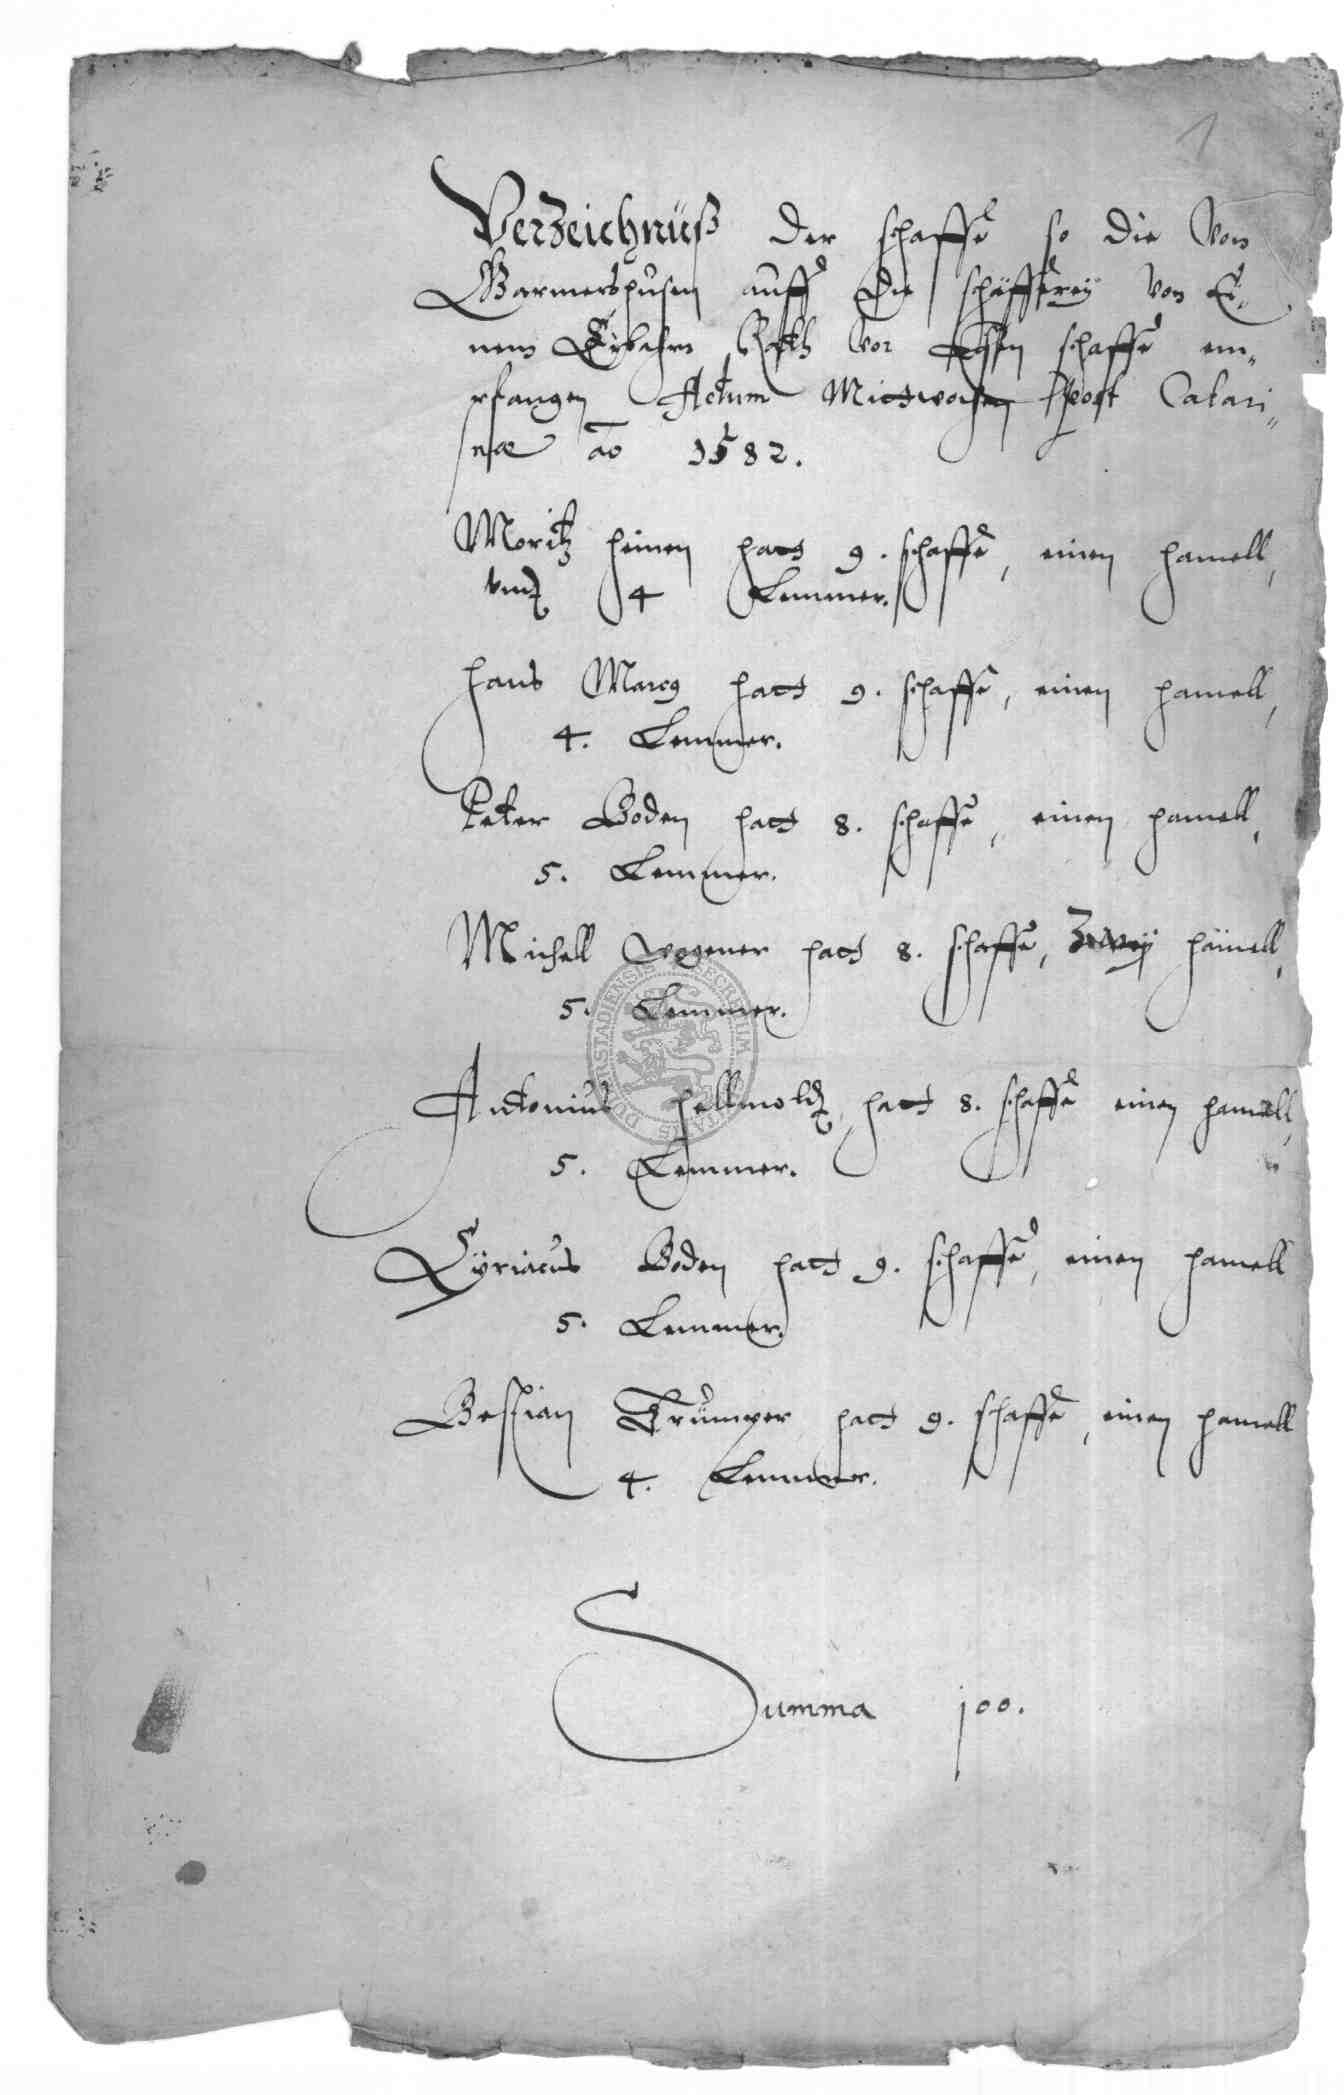 1
Verzeichnüß der schaffe so die Von
Garmershusen auff die schäfferey von Ei„
nem Erbahrn Rath vor schaffe em„
pfangen Actum Mittwochen post Catari„
næ ao 1582.
Moritz heinen hatt 9. schaffe, einen hamell,
vnd 4 Lemmer.
Hans Marcg hatt 9. schaffe, einen hamell,
4. Lemmer.
Peter Boden hatt 8. schaffe, einen hamell,
5. Lemmer.
Michell Wegener hatt 8. schaffe, zwey hämell,
5. Lemmer.
Antonius hellmoldt hatt 8. schaffe einen hamell,
5. Lemmer.
Cyriacus Boden hatt 9. schaffe, einen hamell
5. Lemmer.
Bestian Trümper hatt 9. schaffe, einen hamell
4. Lemmer.
Summa 100.